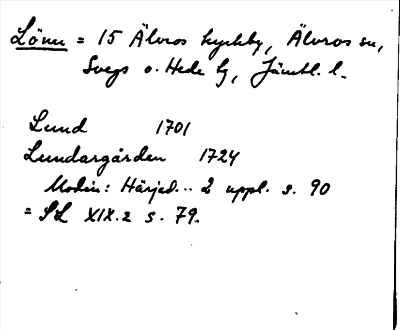 Lönn = 15 Älvros kyrkby, Älvros sn,
Svegs o. Hede tg, Jämtl. l.
Lund 1701
Lundargården 1724
Modin: Härjed... 2 uppl. s. 90
= SL XIX.2 s. 79.